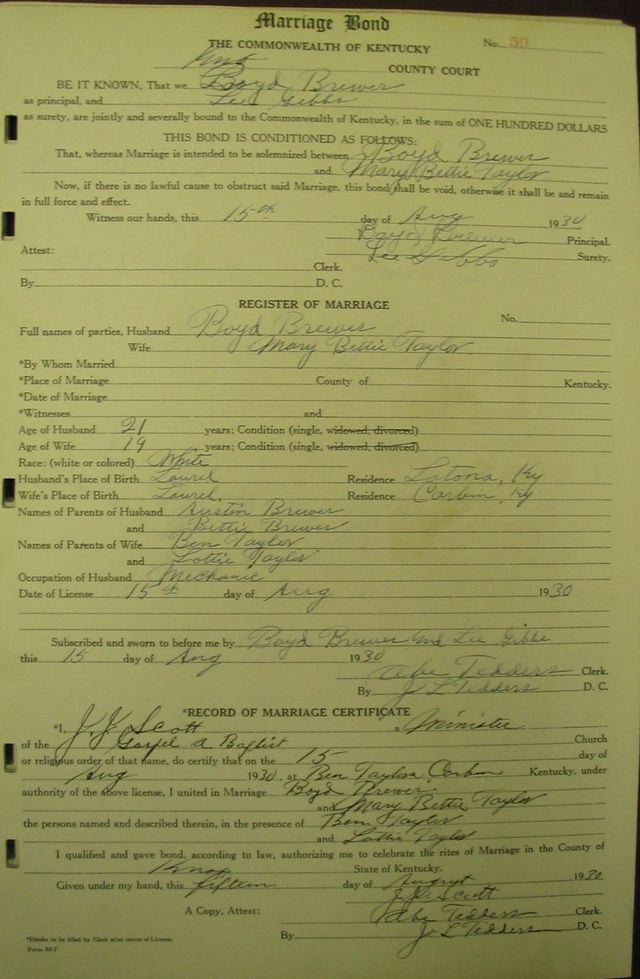 Marriage Bond
THE COMMONWEALTH OF KENTUCKY No. 50
Knox COUNTY COURT
BE IT KNOWN, That we Boyd Brewer
as principal, and Lee Gibbs
as surety, are jointly and severally bound to the Commonwealth of Kentucky, in the sum of ONE HUNDRED DOLLARS
THIS BOND IS CONDITIONED AS FOLLOWS:
That, whereas Marriage is intended to be solemnized between Boyd Brewer
and Mary Bettie Taylor
Now, if there is no lawful cause to obstruct said Marriage, this bond shall be void, otherwise it shall be and remain
in full force and effect.
Witness our hands, this 15th day of Aug 1930
Boyd Brewer Principal.
Lee Gibbs Surety.
Attest:
Clerk.
By D. C.
REGISTER OF MARRIAGE
No.
Full names of parties, Husband Boyd Brewer
Wife Mary Bettie Taylor
*By Whom Married
*Place of Marriage County of Kentucky.
*Date of Marriage
*Witnesses and
Age of Husband 21 years; Condition (single, widowed, divorced)
Age of Wife 19 years; Condition (single, widowed, divorced)
Race: (white or colored) White
Husband's Place of Birth Laurel Residence Latona, Ky
Wife's Place of Birth Laurel, Residence Corbin, Ky
Names of Parents of Husband Austin Brewer
and Bettie Brewer
Names of Parents of Wife Ben Taylor
and Lottie Taylor
Occupation of Husband Mechanic
Date of License 15th day of Aug 1930
Subscribed and sworn to before me by Boyd Brewer and Lee Gibbs
this 15 day of Aug 1930
Abe Tedders Clerk.
By J L Tedders D. C.
*RECORD OF MARRIAGE CERTIFICATE
*I, Scott a Minister
of the Baptist Church
or religious order of that name, do certify that on the 15 day of
Aug 1930, at Ben Taylor Corbin Kentucky, under
authority of the above license, I united in Marriage Boyd Brewer
and Mary Bettie Taylor
the persons named and described therein, in the presence of Ben Taylor
and Lottie Taylor
I qualified and gave bond, according to law, authorizing me to celebrate the rites of Marriage in the County of
Knox State of Kentucky.
Given under my hand, this fifteen day of August 1930
Scott
A Copy, Attest: Abe Tedders Clerk.
By J L Tedders D. C.
*Blanks to be filled by Clerk after return of License.